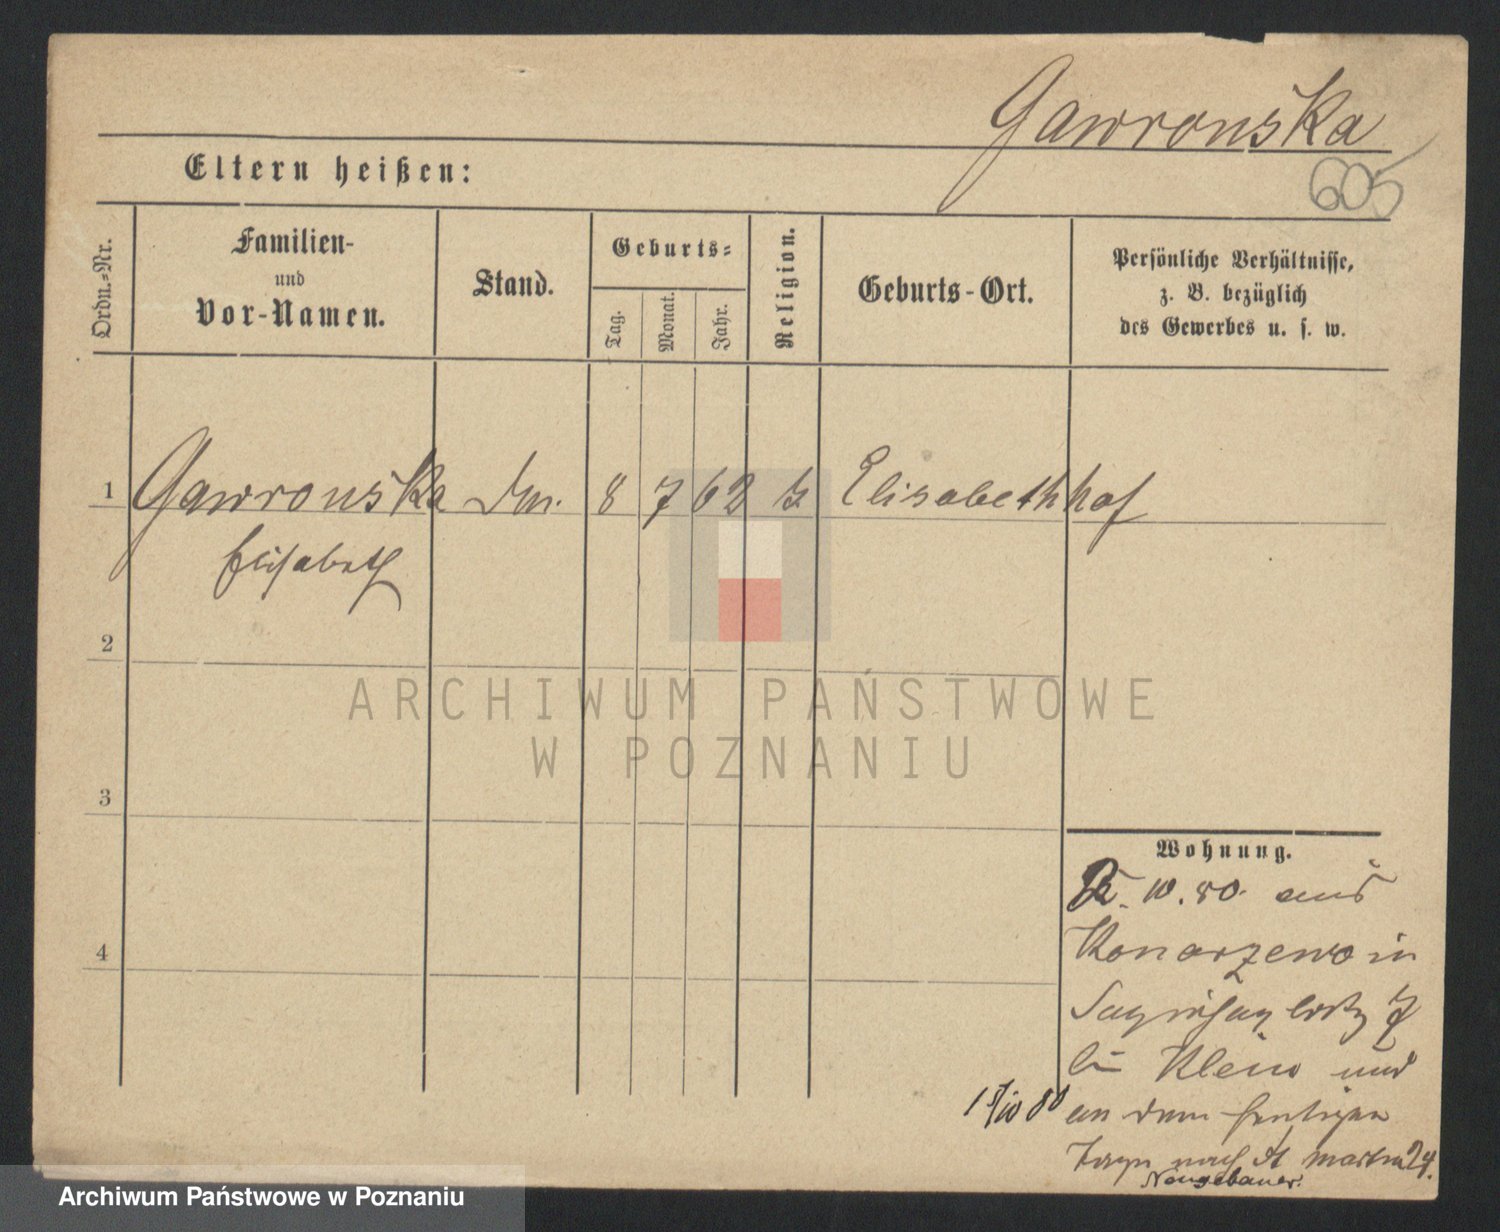 Gawronska
605
Eltern heißen:
Ordn.-Nr.
Familien-
und
Vor-Namen.
Stand.
Geburts-
Tag.
Monat.
Jahr.
Religion.
Geburts-Ort.
Persönliche Verhältnisse,
z. B. bezüglich
des Gewerbes u. s. w.
1 Gawronska 8 7 62 Elisabethhof
Elisabeth
2
3
4
ARCHIWUM PAŃSTWOWE
W POZNANIU
Wohnung.
10. 80. aus
Konarzewo in
Klein und
an dem heutigen
nach St Martin 24.
Neugebauer.
Archiwum Państwowe w Poznaniu